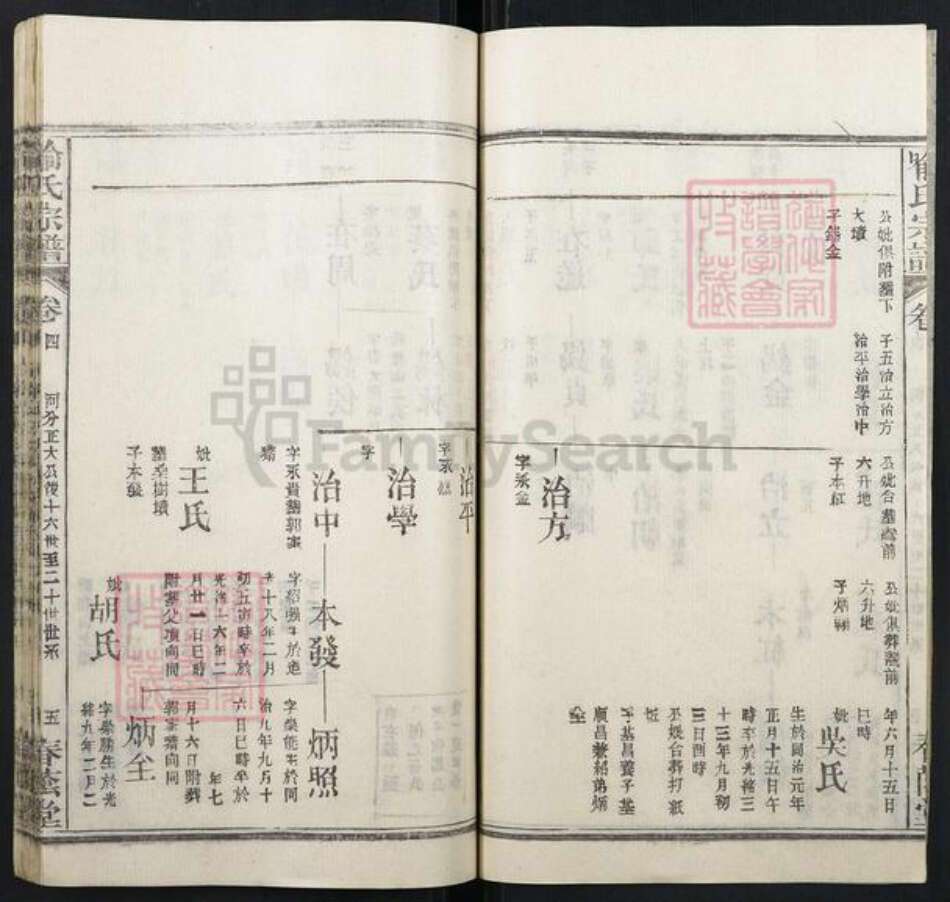 喻氏宗譜
卷
春蔭堂
公妣俱附葬下
大墳
子錫金
子五治立治方
治平治學治中
公妣合葬
前
六升地
子本紅
公妣俱葬
前
六升地
年六月十五日
巳時
妣
吳氏
生於同治元年
正月十五日午
時卒於光緒三
十三年九月初
三日酉時
公妣合葬打紙
子基昌養子基
廣昌兼祧弟炳
治方
字永金
治平
字永
治學
字
治中
字永貴葬郭家
妣
王氏
葬桑樹墳
子本發
本發
於道
光十八年二月
初五寅時卒於
光緒十六年二
月廿一日巳時
附葬父項向同
妣
胡氏
炳照
字榮能生於同
治九年九月十
六日巳時卒於
年七
月十六日附葬
向同
炳全
字榮勝生於光
緒九年二月二
喻氏宗譜
卷四
河分正大公後十六世至二十世世系
五
春蔭堂
FamilySearch